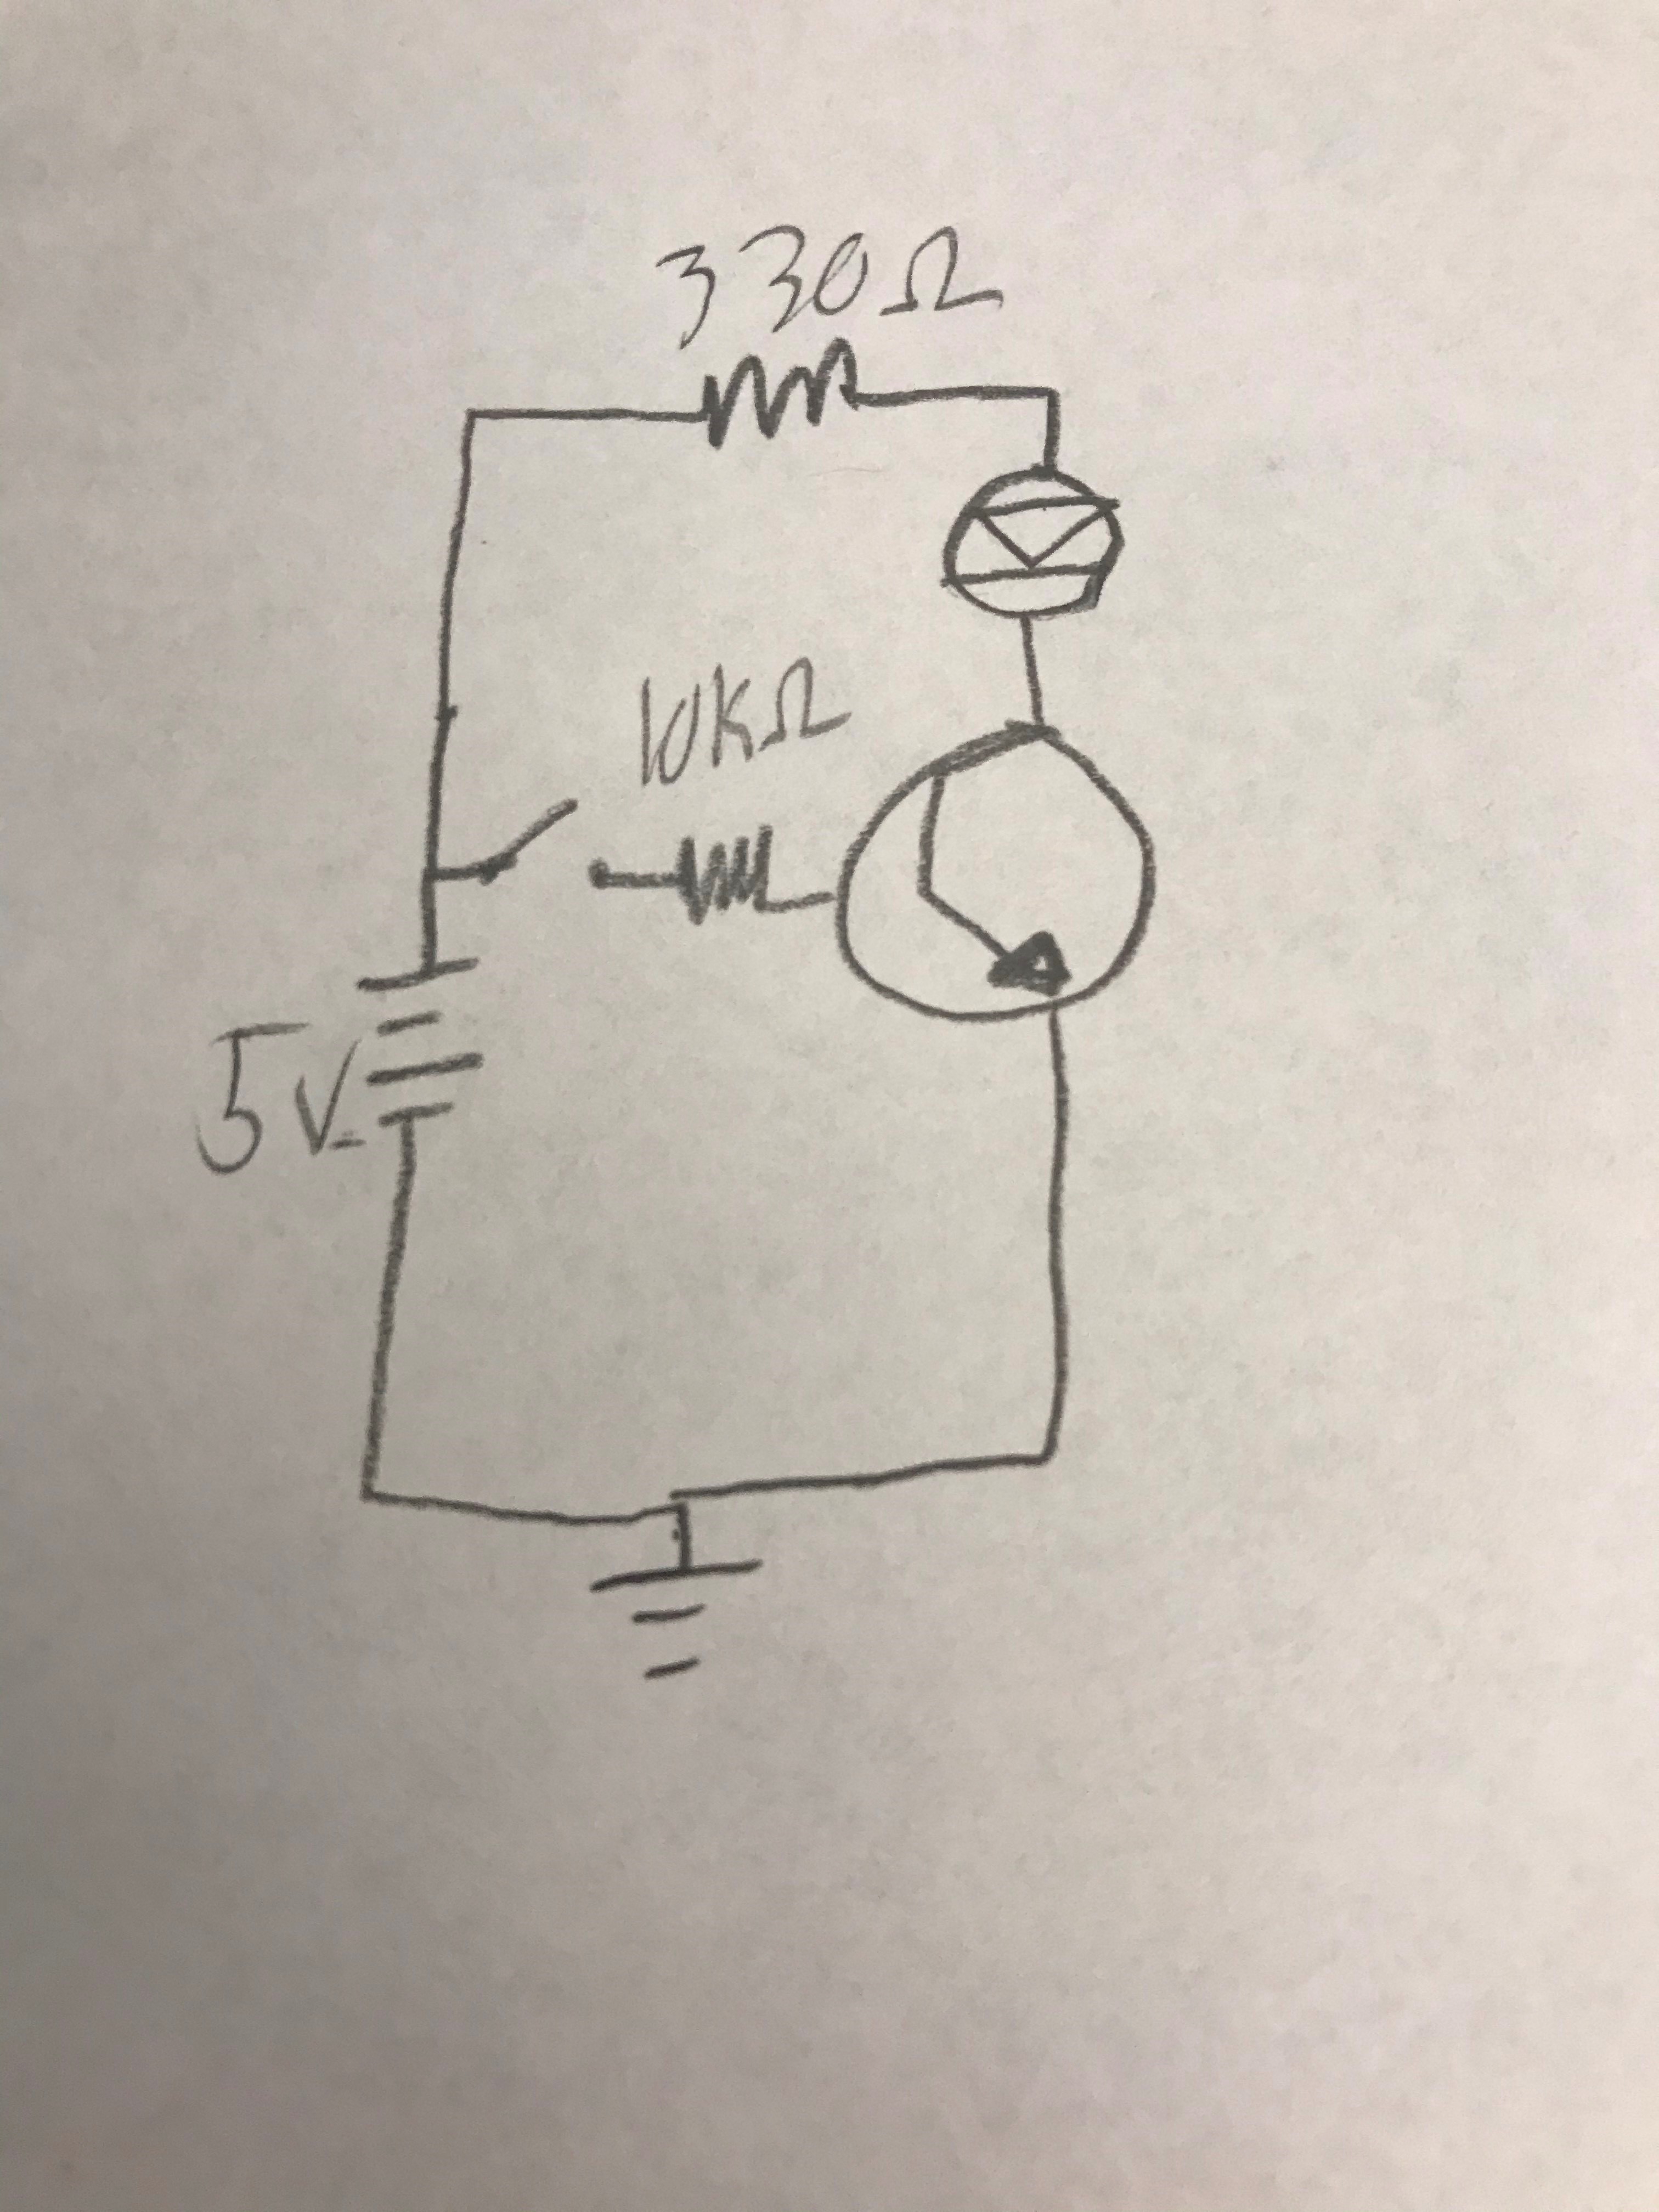 330Ω
10KΩ
5V